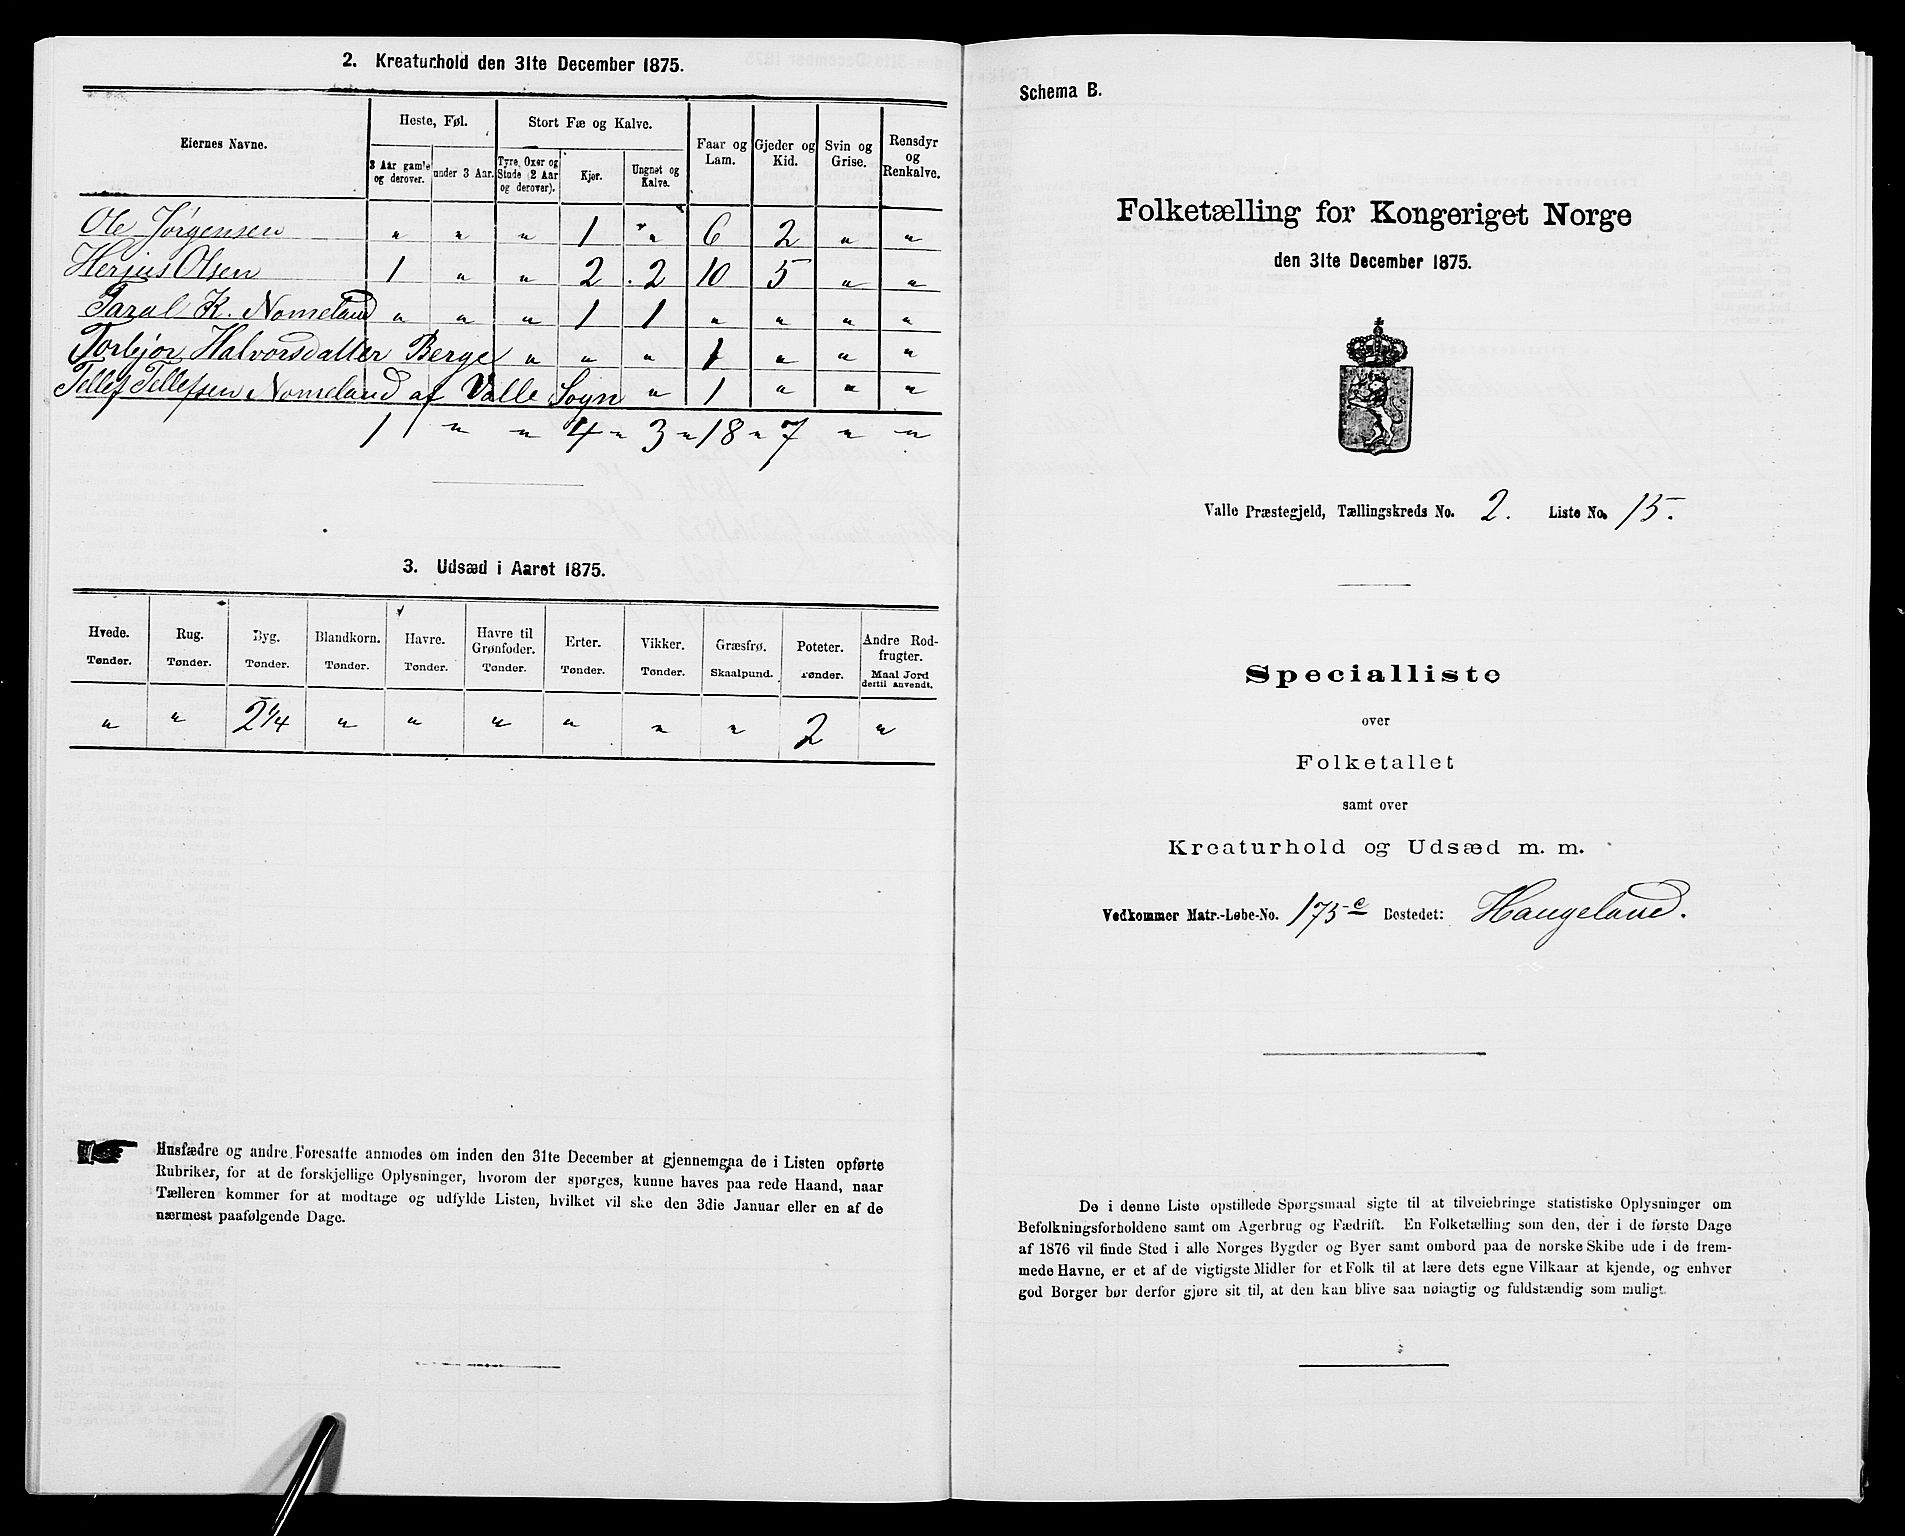 2. Kreaturhold den 31te December 1875.
Eiernes Navne.
Heste, Føl.
Stort Fæ og Kalve.
Faar og Lam.
Gjeder og Kid.
Svin og Grise.
Rensdyr og Renkalve.
3 Aar gamle og derover.
under 3 Aar.
Tyre, Oxer og Stude (2 Aar og derover).
Kjør.
Ungnøt og Kalve.
Ole Jørgensen " " " 1 " 6 2 " "
Herjus Olsen 1 " " 2 2 10 5 " "
Taral K. Nomeland " " " 1 1 " " " "
Torbjør Halvorsdatter Berge " " " 1 " " "
Tellef Tellefsen Nomeland af Valle Sogn " 1 " " "
1 " " 4 " 3 " 18 " 7 " "
3. Udsæd i Aaret 1875.
Hvede. Rug. Byg. Blandkorn. Havre. Havre til Grønfoder. Erter. Vikker. Græsfrø. Poteter. Andre Rodfrugter.
Tønder. Tønder. Tønder. Tønder. Tønder. Tønder. Tønder. Tønder. Skaalpund. Tønder. Maal Jord dertil anvendt.
" " 2 1/4 " " " " " " 2 "
Husfædre og andre Foresatte anmodes om inden den 31te December at gjennemgaa de i Listen opførte
Rubriker, for at de forskjellige Oplysninger, hvorom der spørges, kunne haves paa rede Haand, naar
Tælleren kommer for at modtage og udfylde Listen, hvilket vil ske den 3die Januar eller en af de
nærmest paafølgende Dage.
Schema B.
Folketælling for Kongeriget Norge
den 31te December 1875.
Valle Præstegjeld, Tællingskreds No. 2. Liste No. 15.
Specialliste
over
Folketallet
samt over
Kreaturhold og Udsæd m. m.
Vedkommer Matr.-Løbe-No. 175c Bostedet: Haugeland.
De i denne Liste opstillede Spørgsmaal sigte til at tilveiebringe statistiske Oplysninger om
Befolkningsforholdene samt om Agerbrug og Fædrift. En Folketælling som den, der i de første Dage
af 1876 vil finde Sted i alle Norges Bygder og Byer samt ombord paa de norske Skibe ude i de frem-
mede Havne, er et af de vigtigste Midler for et Folk til at lære dets egne Vilkaar at kjende, og enhver
god Borger bør derfor gjøre sit til, at den kan blive saa nøiagtig og fuldstændig som muligt.